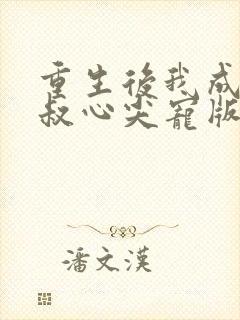 重生後我成
叔心尖寵版
潘文漢